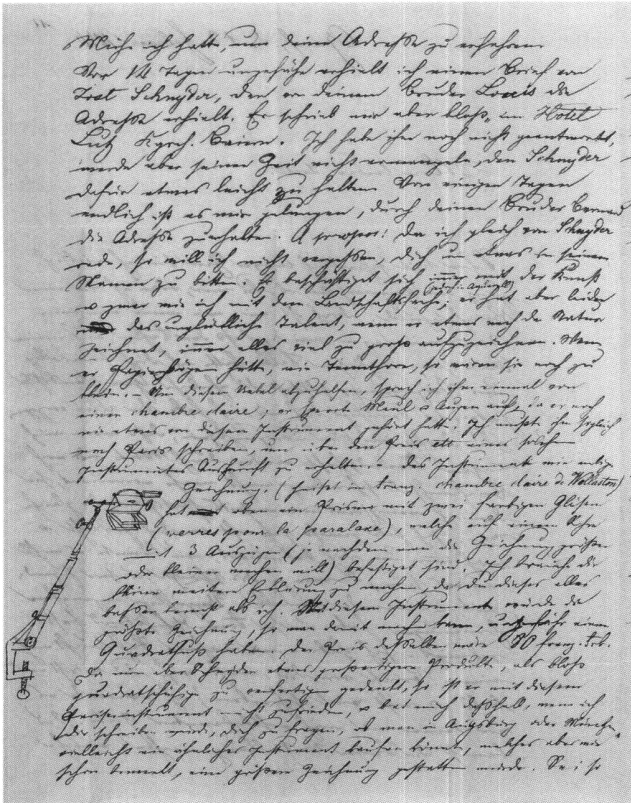 Mühe ich hatte, um deine Adresse zu erfahren.
Vor 14 Tagen ungefähr erhielt ich einen Brief von
Trost Schnyder, den er deinem Bruder Louis die
Adresse erhielt. Er schrieb mir aber bloss, im Hotel
Lutz. Ich habe ihm noch nicht geantwortet,
werde aber seiner Zeit nicht ermangeln, den Schnyder
dafür etwas leicht zu halten. Vor einigen Tagen
endlich ist es mir gelungen, durch deinen Bruder Bernard
die Adresse zu erhalten. A propos! Da ich gleich von Schnyder
rede, so will ich nicht vergessen, dich um etwas in seinem
Namen zu bitten. Er beschäftigt sich immer mit der Kunst
so zwar wie ich mit dem Landschaftsfache; er hat aber leider
das unglückliche Talent, wenn er etwas nach der Natur
zeichnet, immer alles viel zu gross aufzuzeichnen. Wenn
er Papierbögen hätte, wie, so wären sie noch zu
klein. – Um diesem Uebel abzuhelfen, sprach ich ihm einmal von
einer chambre claire, er sperrte Maul & Augen auf, da er noch
nie etwas von diesem Instrument gehört hatte. Ich musste ihm sogleich
nach Paris schreiben, um über den Preis etc eines solchen
Instrumentes Auskunft zu erhalten. des Instruments
Zeichnung. (heisst in franz. chambre claire de Wollaston)
hat ein Prisma mit zwei farbigen Gläsern
(verres pour la paralaxe), welch auf einem
mit 3 Auszügen (je nachdem man die Zeichnung grösser
oder kleiner machen will) befestigt sind. Ich brauche dir
keine weitere Erklärung zu machen, da du dieses alles
besser kennst als ich. Mit diesem Instrumente würde die
grösste Zeichnung, so man damit machen kann, ungefähr einen
Quadratfuss haben. Der Preis desselben wäre 80 franz. frb.
Da nun aber Schnyder etwas grossartigere Produkte, als bloss
quadratschühige zu verfertigen gedenkt, so ist er mit diesem
Pariserinstrument nicht zufrieden, & bat mich desshalb, wenn ich
dir schreiben werde, dich zu fragen, ob man in Augsburg oder München
vielleicht ein ähnliches Instrument kaufen könnte, welches aber wie
schon bemerkt, eine grössere Zeichnung gestatten würde. Sei so